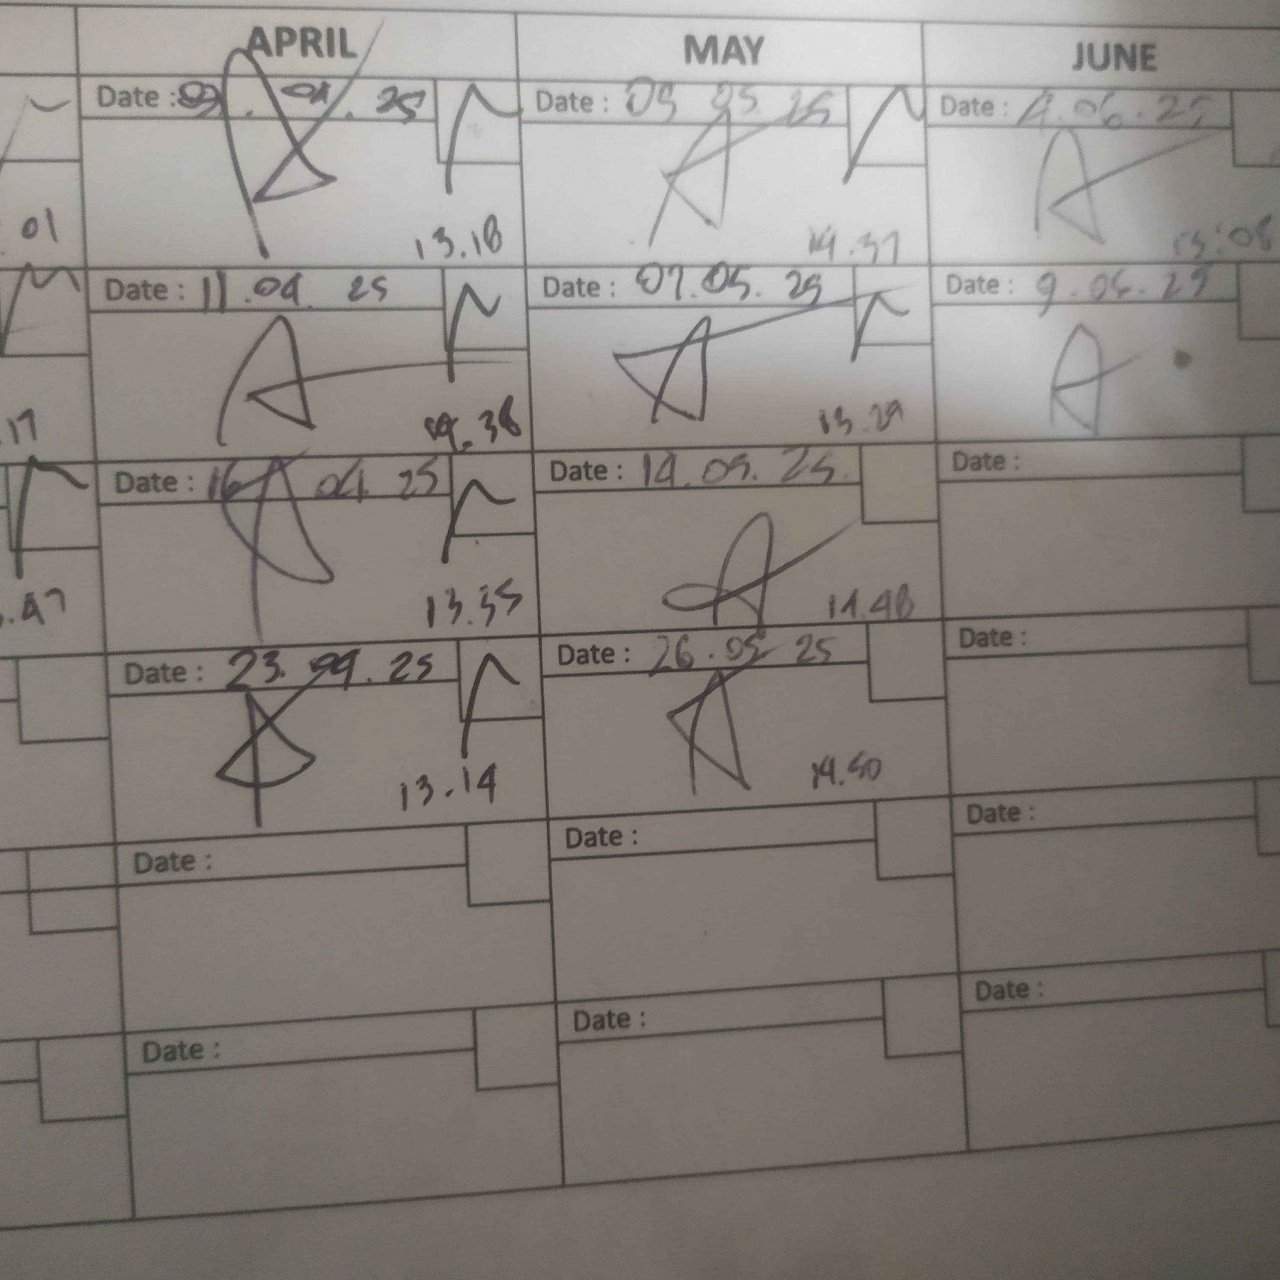 APRIL MAY JUNE
Date : 03.04.25 Date : 05.05.25 Date : 4.06.25
01 13.18 14.37 13:08
Date : 11.04.25 Date : 07.05.25 Date : 9.06.25
.17 14.38 13.29
Date : 16.04.25 Date : 14.05.25 Date :
.47 13.35 14.48
Date : 23.04.25 Date : 26.05.25 Date :
13.14 14.50
Date : Date : Date :
Date : Date : Date :